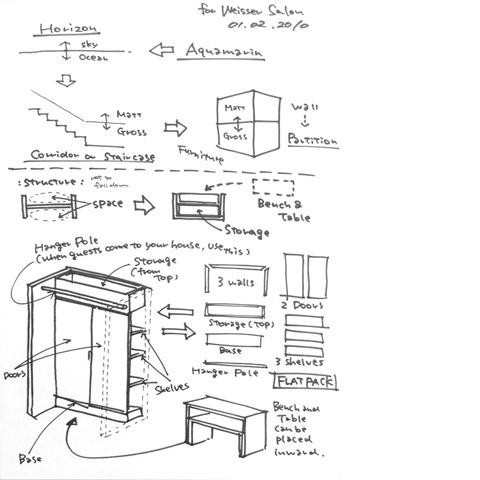 for Weisser Salon
01.02.2010
Horizon
sky
Ocean
Aquamarin
Matt
Gross
Corridor or Staircase
Matt
Gross
Furniture
wall
Partition
:Structure:
not to fall down
space
Storage
Bench &
Table
Hanger Pole
(when guests come to your house, use this)
Storage
(from
Top)
3 walls
2 Doors
Storage (Top)
Base
3 shelves
Hanger Pole
FLATPACK
Doors
Shelves
Base
Bench and
Table
can be
placed
inward.